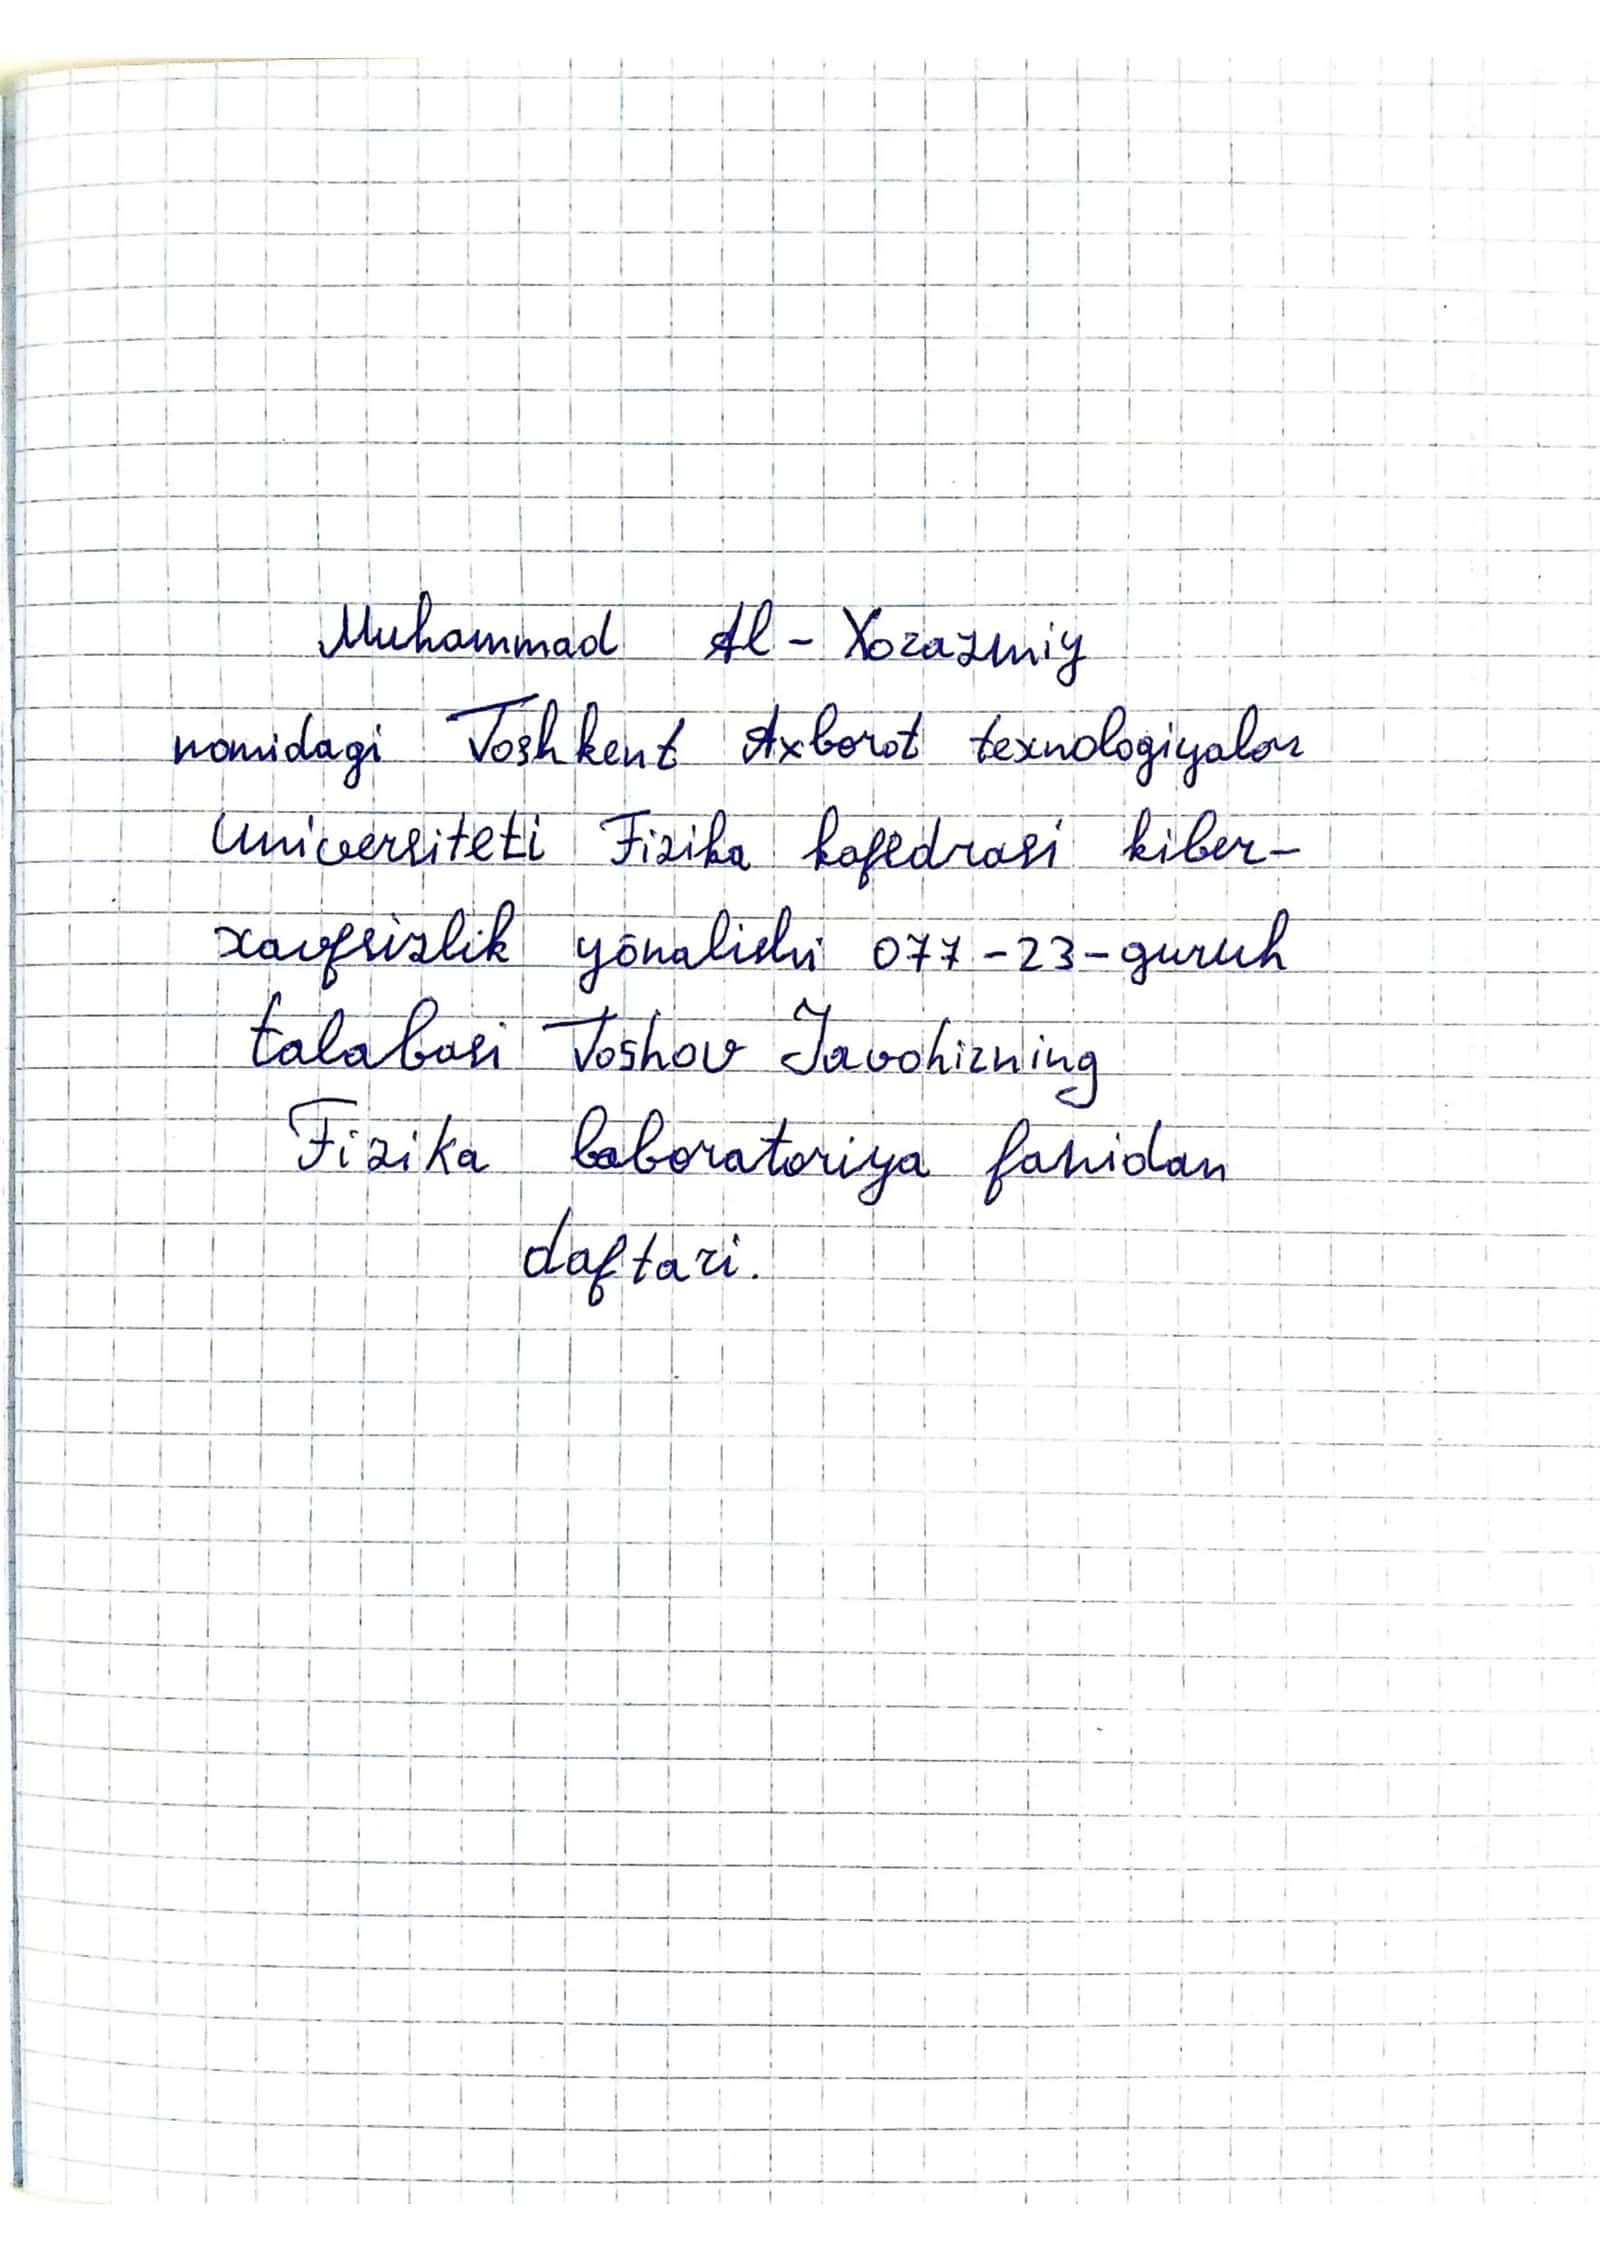 Muhammad Al-Xorazmiy
nomidagi Toshkent Axborot texnologiyalar
Universiteti Fizika kafedrasi kiber-
xavfsizlik yōnalishi 077-23-guruh
talabasi Toshov Javohirning
Fizika laboratoriya fanidan
daftari.